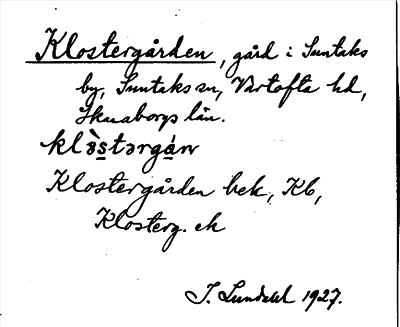 Klostergården, gård i Suntaks
by, Suntaks sn, Vartofta hd,
Skaraborgs län.
klòstərgán
Klostergården bek, Kb,
Klosterg. ek
J. Lundahl 1927.